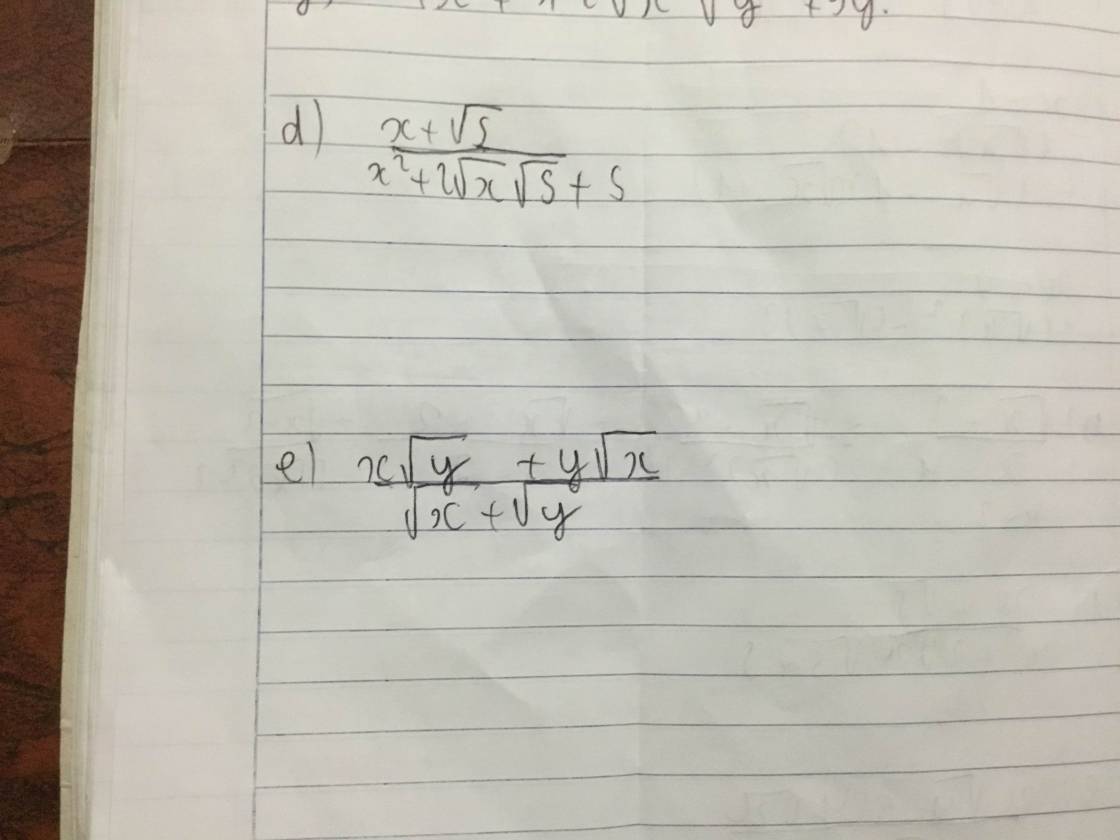 d) x + √5 / x² + 2√x √5 + 5
e) x√y + y√x / √x + √y